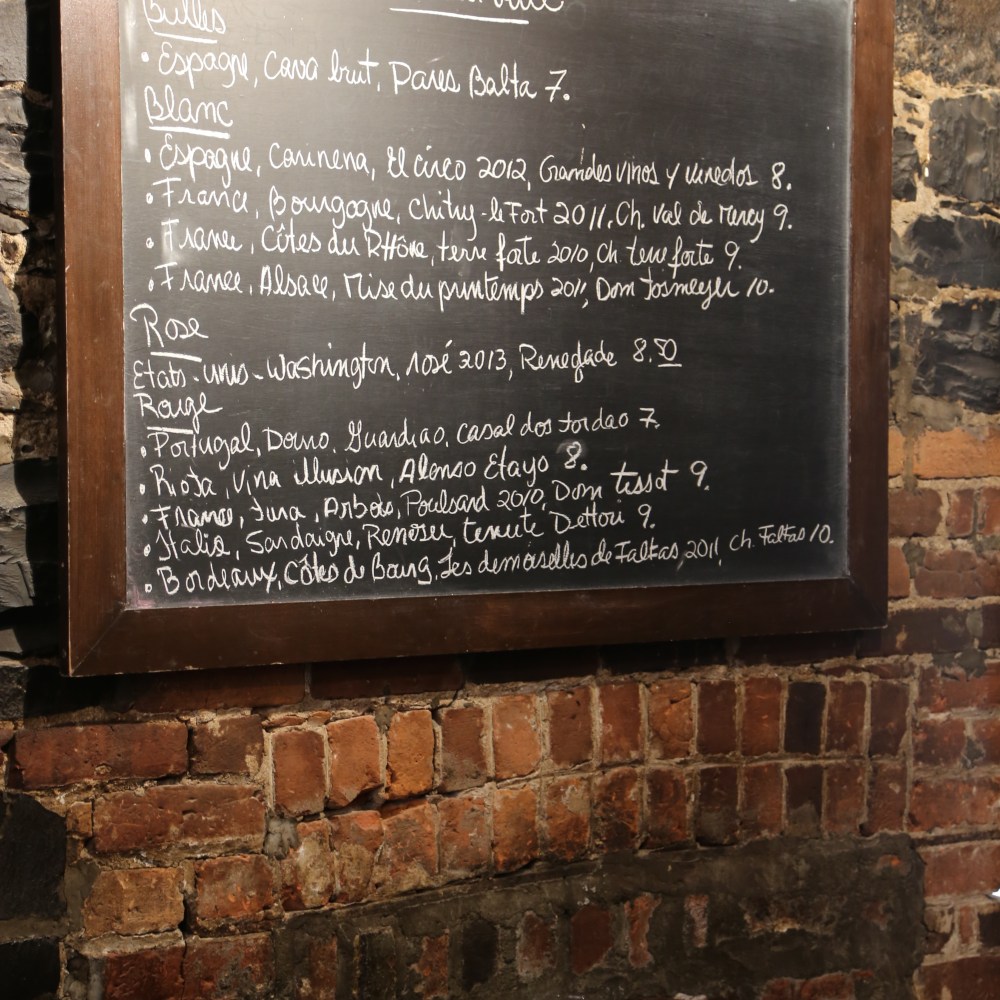 Bulles
• Espagne, Cava brut, Pares Balta 7.
Blanc
• Espagne, Carinena, El circo 2012, Grandes vinos y vinedos 8.
• France, Bourgogne, Chitry-le Fort 2011, Ch. Val de Mercy 9.
• France, Côtes du Rhône, terre forte 2010, Ch terre forte 9.
• France, Alsace, Mise du printemps 2011, Dom Josmeyer 10.
Rose
Etats-unis-Washington, rosé 2013, Renegade 8.50
Rouge
• Portugal, Douro, Guardiao, casal dos Jordao 7.
• Rioja, Vina illusion, Alonso Etayo 8.
• France, Jura, Arbois, Poulsard 2010, Dom tissot 9.
• Italie, Sardaigne, Renosu, tenute Dettori 9.
• Bordeaux, Côtes de Bourg, Les demoiselles de Falfas 2011, Ch. Falfas 10.